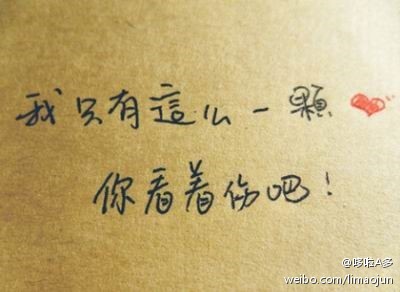 我只有這么一顆❤
你看着伤吧!
@哆啦A多
weibo.com/limaojun